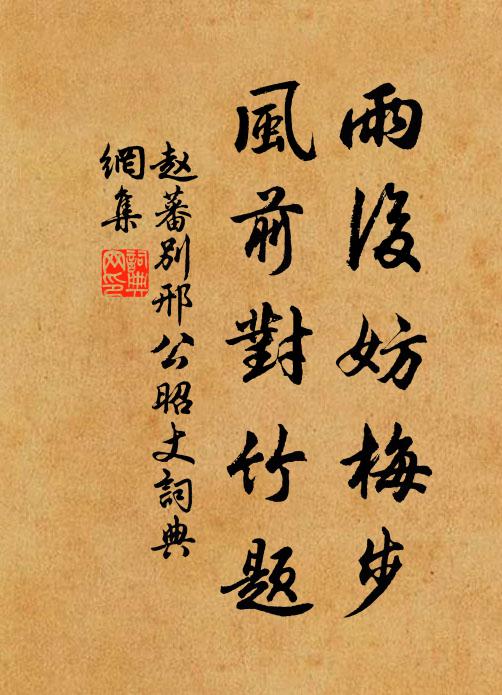 雨後妨梅步
風前對竹題
赵蕃别邢公昭丈詞典
網集
詞典
网印